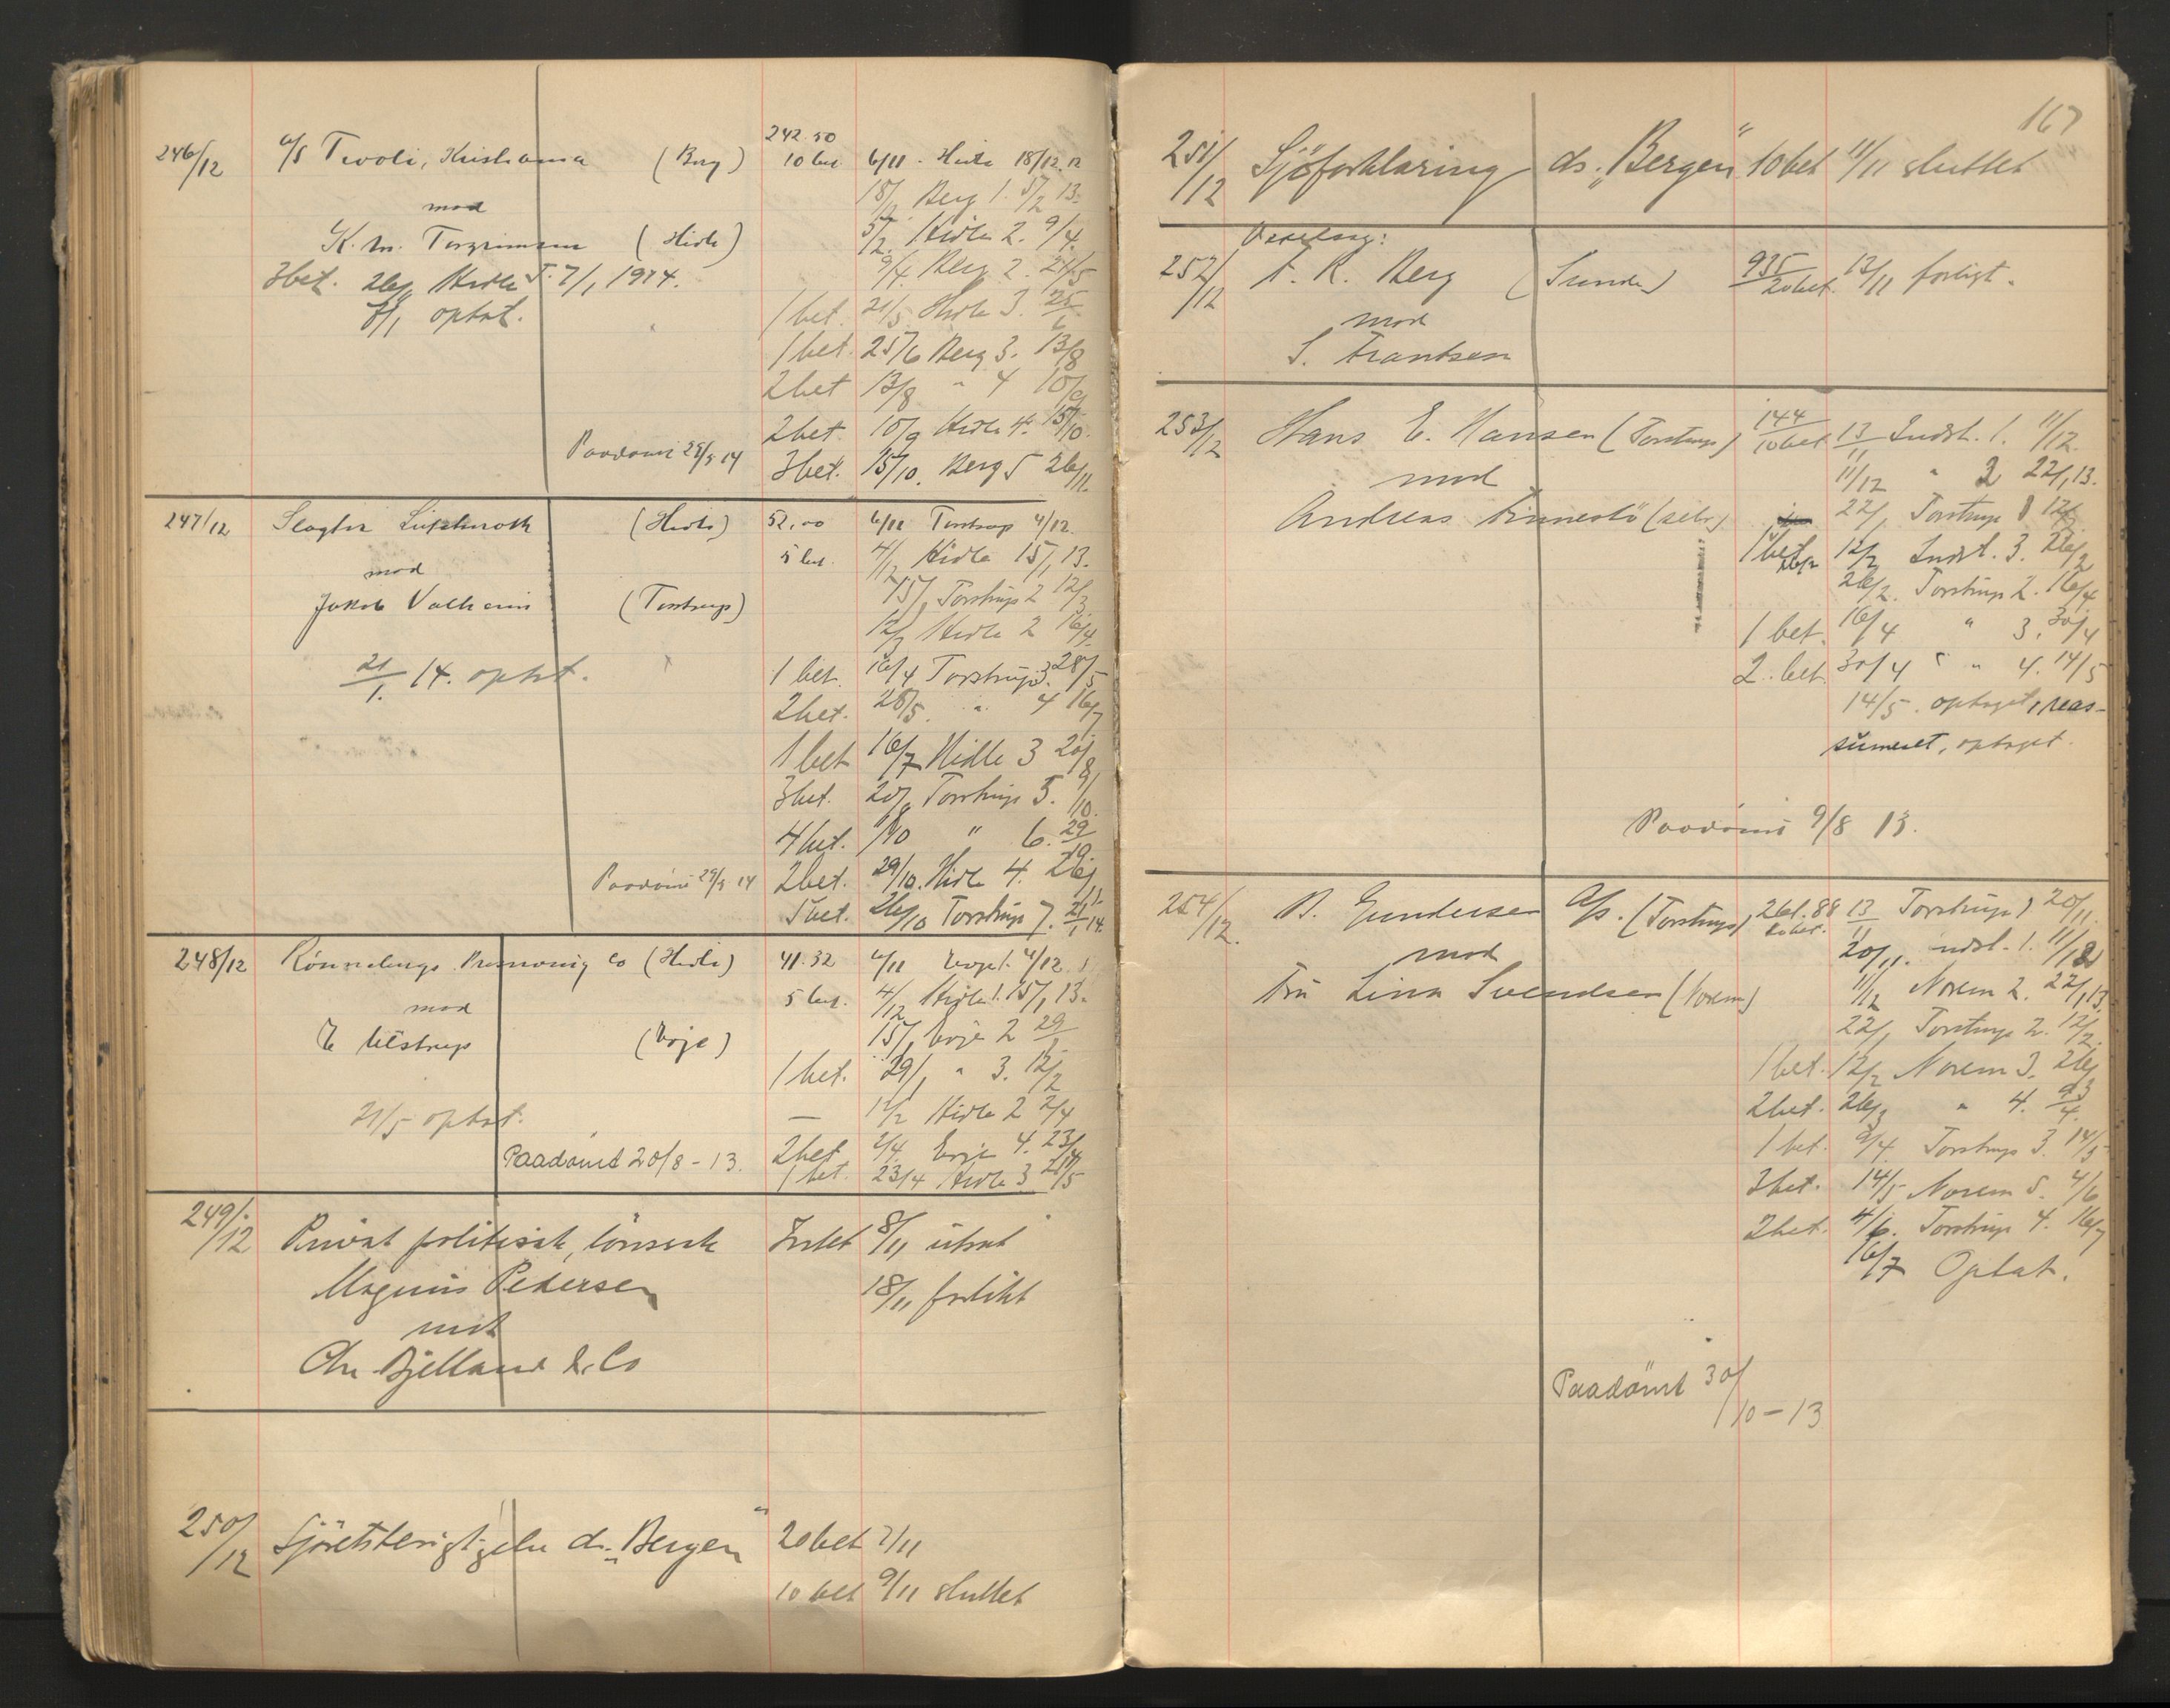 246/12 A/S Tivoli, Kristiania (Berg) 242.50
10 bet 6/11 - Hidle 18/12.12
18/12 Berg 1. 5/2 13.
mod
5/2. Hidle 2. 9/4.
K. M. Torgrimsen (Hidle)
9/4. Berg 2. 21/5
3bet. 26/11 Hidle 5. 7/1 1914.
7/1 optat.
1 bet. 21/5 Hidle 3. 25/6
1 bet. 25/6 Berg 3. 13/8
2 bet 13/8 " 4 10/9
2 bet. 10/9 Hidle 4. 15/10.
Paadømt 29/5 14
3 bet. 15/10. Berg 5 26/11.
247/12 Slagter (Hidle) 52.00 6/11 Torstrup 4/12.
5 bet. 4/12 Hidle 15/1 13.
mod
15/1 Torstrup 2 12/3.
Jakob (Torstrup)
12/3 Hidle 2 16/4.
21/1. 14. optat.
1 bet. 16/4 Torstrup 3. 28/5
2bet. 28/5. " 4 16/7
1 bet 16/7 Hidle 3 20/8
3bet. 20/8 Torstrup 5. 9/10.
4 bet. 9/10 " 6. 29/10.
Paadømt 29/5 14 2bet. 29/10. Hidle 4. 26/11.
5bet. 26/10 Torstrup 7. 21/1 14.
248/12 Rönnebergs Preserving Co (Hidle) 41.32 6/11 Eeg 4/12.
5 bet. 4/12 Hidle 1. 15/1 13.
mod
15/1 2 29/1
Ulstrup
1 bet. 29/1 " 3. 12/2
12/2 Hidle 2 2/4
21/5 optat.
Paadömt 20/8 - 13. 2bet 2/4. 4. 23/4
1 bet. 23/4 Hidle 3 21/5
249/12 Privat politisak, lönssak Intet 8/11 utsat
Magnus Pedersen 18/11 forlikt
mot
Chr. Bjelland & Co
250/12 Sjöretsberigtigelse ds. „Bergen" 20bet 7/11
10 bet 9/11 sluttet
167
251/12 Sjöforklaring ds. „Bergen" 10bet 11/11 sluttet
Vexelsag:
252/12 A. K. Berg (Sunde) 935/20bet. 13/11 forligt.
mod
S. Frantsen
253/12 Hans E. Hansen (Torstrup) 144/10bet. 13/11 Indst. 1. 11/12.
11/12 " 2 22/1 13.
mod
Andreas (selv) 22/1 Torstrup 1 12/2.
1 bet. 12/2 Indst. 3. 26/2
26/2. Torstrup 2. 16/4
1 bet. 16/4 " 3. 30/4
2. bet. 30/4 " " 4. 14/5
14/5. optaget, reas-
sumeret, optaget.
Paadömt 9/8 13.
254/12. B. Gundersen A/S. (Torstrup) 261.88 13/11 Torstrup 1 20/11.
10bet.
20/11. indst. 1. 11/12
mod
11/12 Norem 2. 22/1 13.
Fru Lina Svendsen (Norem)
22/1 Torstrup 2. 12/2.
1 bet. 12/2 Norem 3. 26/3
2bet. 26/3 " 4. 9/4.
1 bet. 9/4. Torstrup 3. 14/5
3bet. 14/5 Norem 5. 4/6
2bet. 4/6. Torstrup 4. 16/7
16/7 Optat.
Paadömt 30/10 - 13